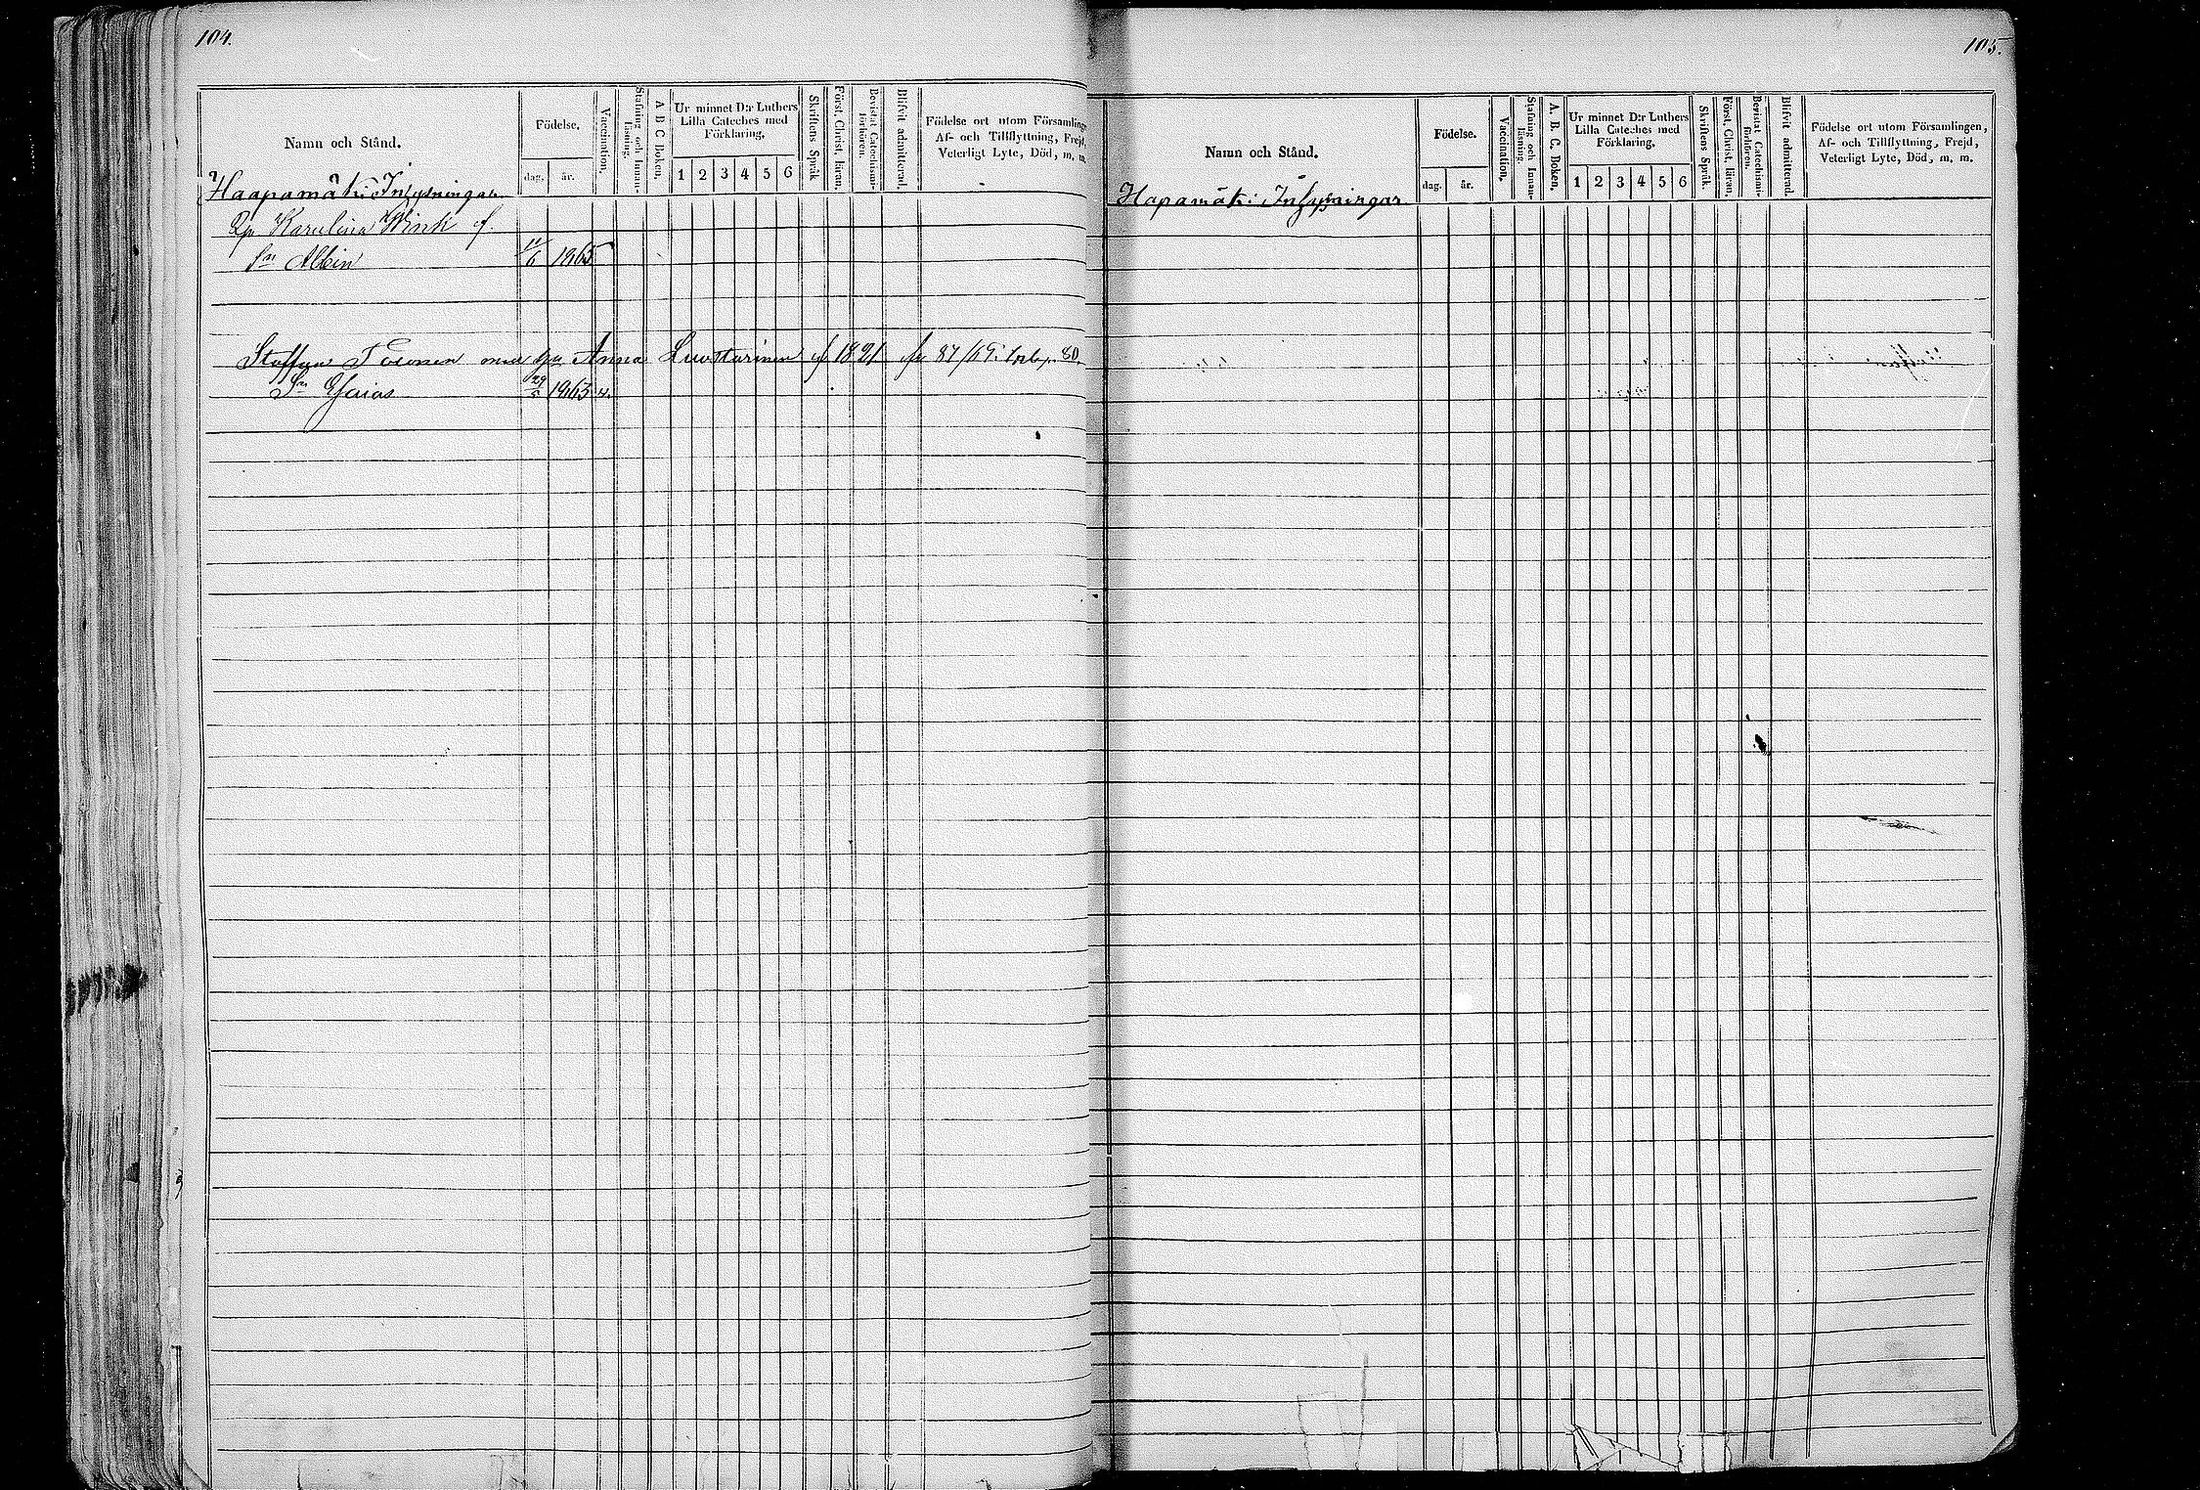 104.
Namn och Stånd.
Födelse.
dag.
år.
Vaccination.
Stafning och Innan-
läsning.
A. B. C. Boken.
Ur minnet D:r Luthers
Lilla Cateches med
Förklaring.
1 2 3 4 5 6
Skriftens Språk
Först. Christ. läran.
Bevistat Catechismi-
förhören.
Blifvit admitterad.
Födelse ort utom Församlingen
Af- och Tillflyttning, Frejd,
Veterligt Lyte, Död, m. m.
Haapamäki Inhysningar
Karulina
Sn Albin 11/6 1863
Staffan Toivonen med Anna Luostarinen f 1821 87/69
Sn Esaias 29/5 1863 v.
105.
Namn och Stånd.
Födelse.
dag.
år.
Vaccination.
Stafning och Innan-
läsning.
A. B. C. Boken.
Ur minnet D:r Luthers
Lilla Cateches med
Förklaring.
1 2 3 4 5 6
Skriftens Språk.
Först. Christ. läran.
Bevistat Catechismi-
förhören.
Blifvit admitterad.
Födelse ort utom Församlingen,
Af- och Tillflyttning, Frejd,
Veterligt Lyte, Död, m. m.
Hapamäki Inhysningar